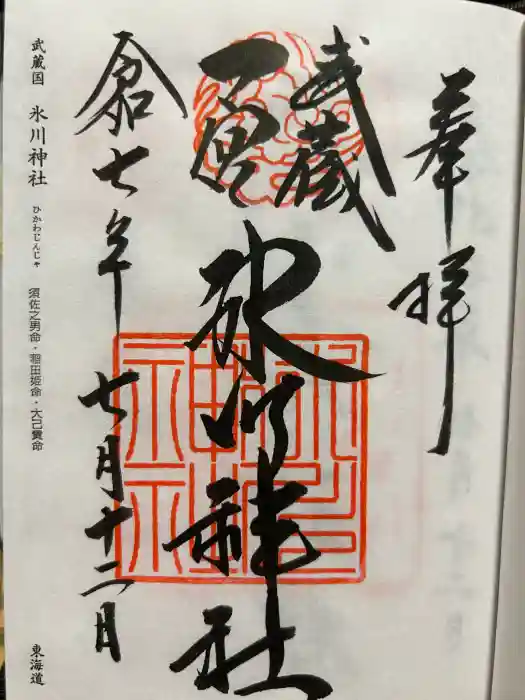 奉拝
武蔵
一宮
氷川神社
令七年
七月十二日
武蔵国 氷川神社 ひかわじんじゃ 須佐之男命・稲田姫命・大己貴命
東海道